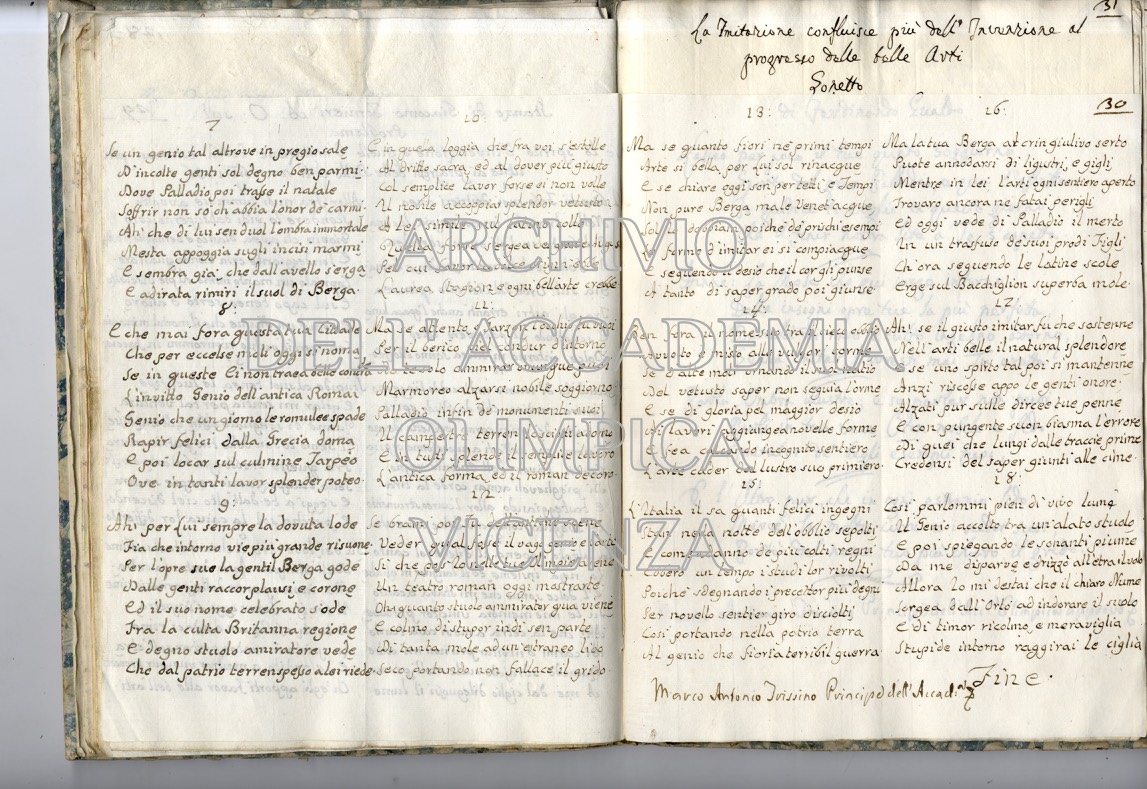 31
La Imitazione confluisce più dell' Invenzione al
progresso delle belle Arti
Sonetto
30
7
Se un genio tal altrove in pregio sale
D'incolte genti sol degno ben parmi
Dove Palladio poi trasse il natale
Soffrir non so ch'abbia l'onor de' carmi
Ahi che di lui sen duol l'ombra immortale
Mesta appoggia sugli incisi marmi
E sembra già che dall'avello s'erga
E adirata rimiri il suol di Berga.
8.
E che mai fora questa tua Cittade
Che per eccelse moli oggi si noma
Se in queste Ei non traea delle contrade
L'invitto Genio dell'antica Roma
Genio che un giorno le romulee spade
Rapir felici dalla Grecia doma
E poi locar sul culmine Tarpeo
Ove in tanti lavor splender poteo.
9.
Ahi per lui sempre la dovuta lode
Fia che intorno vie più grande risuone
Per l'opre sue la gentil Berga gode
Dalle genti raccor plausi e corone
Ed il suo nome celebrato s'ode
Fra la culta Britanna regione
E degno stuolo amiratore vede
Che dal patrio terren spesso a lei riede.
10
E in quela loggia che fra voi s'estolle
Al dritto sacra, ed al dover più giusto
Col semplice lavor forse ei non volle
Il nobile accoppiar splendor vetusto
Laurea Stagion e ogni bell'arte crebbe
11.
Per il berico
Marmoreo alzarsi nobile soggiorno
Palladio infin de' monumenti suoi
Il campestre terren
E in tutti splende il semplice lavoro
L'antica forma, ed il roman decoro.
12
Se brami poi
Veder qual fosse il vago genio e l'arte
Si che poi lo
Un teatro romano oggi mostrarte
Oh quanto stuolo ammirator qua viene
E colmo di stupor indi sen parte
Di tanta mole ad un estraneo lido
Seco portando non fallace il grido
13.
Ma se quanto fiori ne' primi tempi
Arte si bella per lui sol rinacque
E se chiare oggi son per tetti, e Tempi
Non pure Berga ma le Venet'acque
Sol
le forme d'imitar ei si compiacque
E seguendo il desio che il cor gli punse
A tanto di saper grado poi giunse.
14.
Del vetusto saper non seguia l'orme
E se di gloria pel maggior desio
Ai lavori aggiungea novelle forme
E fea calcando incognito sentiero
L'arte cader dal lustro suo primiero.
15.
L'Italia il sa quanti felici ingegni
Stan nella notte dell'obblio sepolti
E com' a danno de' più colti regni
Ebbero un tempo i studi lor rivolti
Poiche sdegnando i precettor più degni
Per novello sentier giro disciolti
Cosi portando nella patria terra
Al genio che fioria terribil guerra.
16.
Ma la tua Berga al crin giulivo serto
Puote annodarsi di ligustri, e gigli
Mentre in lei l'arti ogni sentiero aperto
Trovaro ancora ne' fatai perigli
Ed oggi vede di Palladio il merto
In un trasfuso de' suoi prodi Figli
Ch'ora seguendo le latine scole
Erge sul Bacchiglion superba mole.
17.
Ahi se il giusto imitar fu che sostenne
Nell'arti belle il natural splendore
E se uno spirto tal poi si mantenne
Anzi riscosse appo le genti onore.
Alzati pur sulle dircee tue penne
E con pungente suon biasma l'errore
Di quei che lungi dalle traccie prime
Credonsi del saper giunti alle cime.
18.
Cosi parlommi pien di vivo lume
Il Genio accolto tra un'alato stuolo
E poi spiegando le sonanti piume
Da me disparve e drizzò all'etra il volo
Allora Io mi destai che il chiaro Nume
Sorgea dall'Orto ad indorare il suolo
E di timor ricolmo, e meraviglia
Stupide intorno raggirai le ciglia
Fine.
Marco Antonio Trissino Principe dell'Accad.a
ARCHIVIO
DELL'ACCADEMIA
OLIMPICA
VICENZA